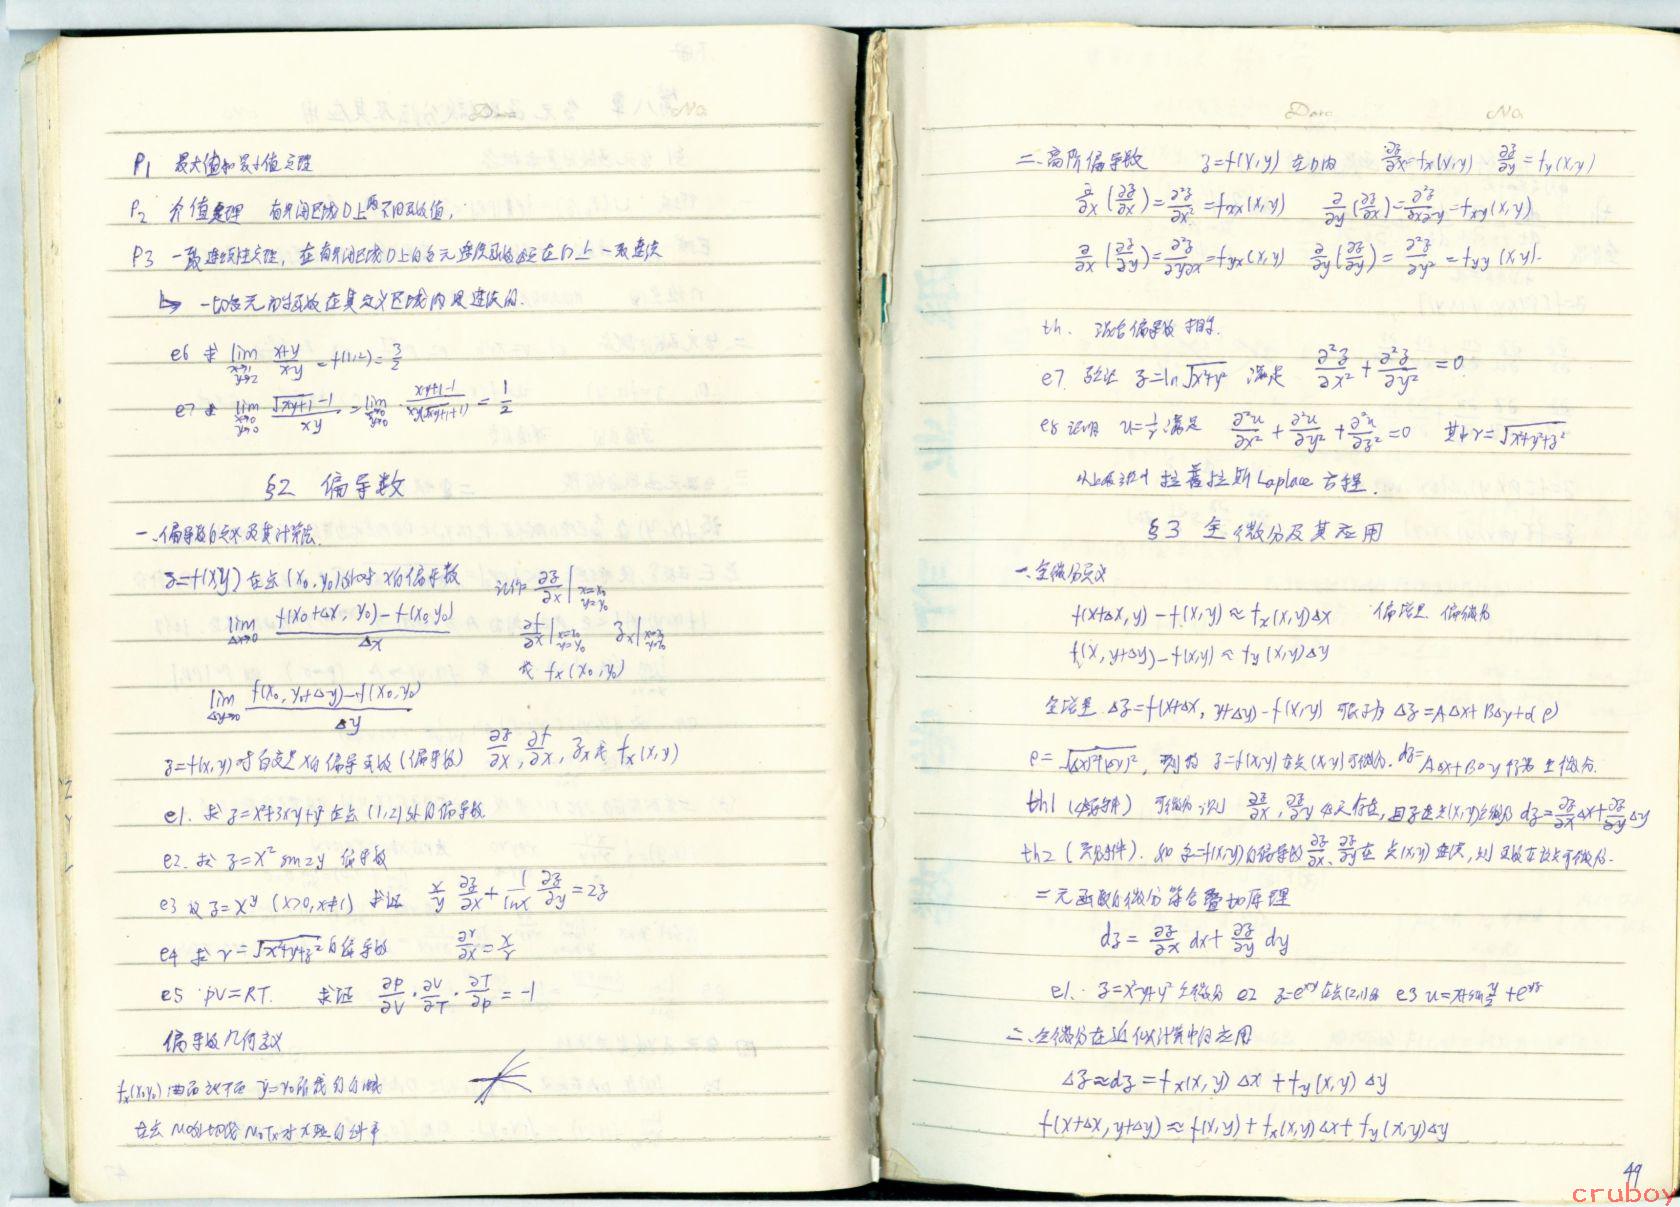 P1 最大值和最小值定理
P2 介值定理 有界闭区域D上两不同函数值,
P3 一致连续性定理, 在有界闭区域D上的多元连续函数必定在D上一致连续
↳ 一切多元初等函数在其定义区域内是连续的.
e6 求 lim x→1 y→2 (x+y)/(xy) = f(1,2) = 3/2
e7 求 lim x→0 y→0 (√(xy+1) -1)/(xy) = lim x→0 y→0 (xy+1-1)/(xy(√(xy+1)+1)) = 1/2
§2 偏导数
一.偏导数的定义及其计算法.
z=f(x,y) 在点(x₀,y₀)处对x的偏导数 记作 ∂z/∂x| x=x₀ y=y₀
lim Δx→0 (f(x₀+Δx, y₀)-f(x₀,y₀))/Δx ∂f/∂x| x=x₀ y=y₀ zx| x=x₀ y=y₀
或 fx(x₀,y₀)
lim Δy→0 (f(x₀, y₀+Δy)-f(x₀,y₀))/Δy
z=f(x,y)对自变量x的偏导函数(偏导数) ∂z/∂x, ∂f/∂x, zx或 fx(x,y)
e1. 求 z=x²+3xy+y² 在点(1,2)处的偏导数
e2. 求 z=x² sin2y 偏导数
e3 设 z=x^y (x>0, x≠1) 求证 x/y ∂z/∂x + 1/lnx ∂z/∂y = 2z
e4 求 r=√(x²+y²+z²) 的偏导数 ∂r/∂x = x/r
e5 pV=RT. 求证 ∂p/∂V · ∂V/∂T · ∂T/∂p = -1
偏导数几何意义
fx(x₀,y₀) 曲面被平面 y=y₀所截的曲线
在点M₀处切线M₀Tx对x轴的斜率
二.高阶偏导数 z=f(x,y) 在D内 ∂z/∂x=fx(x,y) ∂z/∂y=fy(x,y)
∂/∂x(∂z/∂x)=∂²z/∂x²=fxx(x,y) ∂/∂y(∂z/∂x)=∂²z/∂x∂y=fxy(x,y)
∂/∂x(∂z/∂y)=∂²z/∂y∂x=fyx(x,y) ∂/∂y(∂z/∂y)=∂²z/∂y²=fyy(x,y).
th. 混合偏导数相等.
e7. 验证 z=ln√(x²+y²) 满足 ∂²z/∂x²+∂²z/∂y²=0
e8 证明 u=1/r 满足 ∂²u/∂x²+∂²u/∂y²+∂²u/∂z²=0 其中r=√(x²+y²+z²)
拉普拉斯 Laplace 方程.
§3 全微分及其应用
一.全微分定义
f(x+Δx,y)-f(x,y)≈fx(x,y)Δx 偏增量 偏微分
f(x,y+Δy)-f(x,y)≈fy(x,y)Δy
全增量 Δz=f(x+Δx, y+Δy)-f(x,y) 可表示为 Δz=AΔx+BΔy+o(ρ)
ρ=√((Δx)²+(Δy)²), 则称 z=f(x,y)在点(x,y)可微分. dz=AΔx+BΔy 称为全微分.
th1 (必要条件) 可微分 则 ∂z/∂x, ∂z/∂y 必存在, 且z在点(x,y)全微分 dz=∂z/∂x Δx+∂z/∂y Δy
th2 (充分条件). 如 z=f(x,y)的偏导数 ∂z/∂x, ∂z/∂y 在点(x,y)连续, 则函数在该点可微分.
二元函数的微分符合叠加原理
dz= ∂z/∂x dx+ ∂z/∂y dy
e1. z=x²y+y² 全微分 e2 z=e^xy在点(2,1)处 e3 u=x+sin y/2 +e^yz
二.全微分在近似计算中的应用
Δz≈dz=fx(x,y)Δx+fy(x,y)Δy
f(x+Δx, y+Δy)≈f(x,y)+fx(x,y)Δx+fy(x,y)Δy
49
cruboy